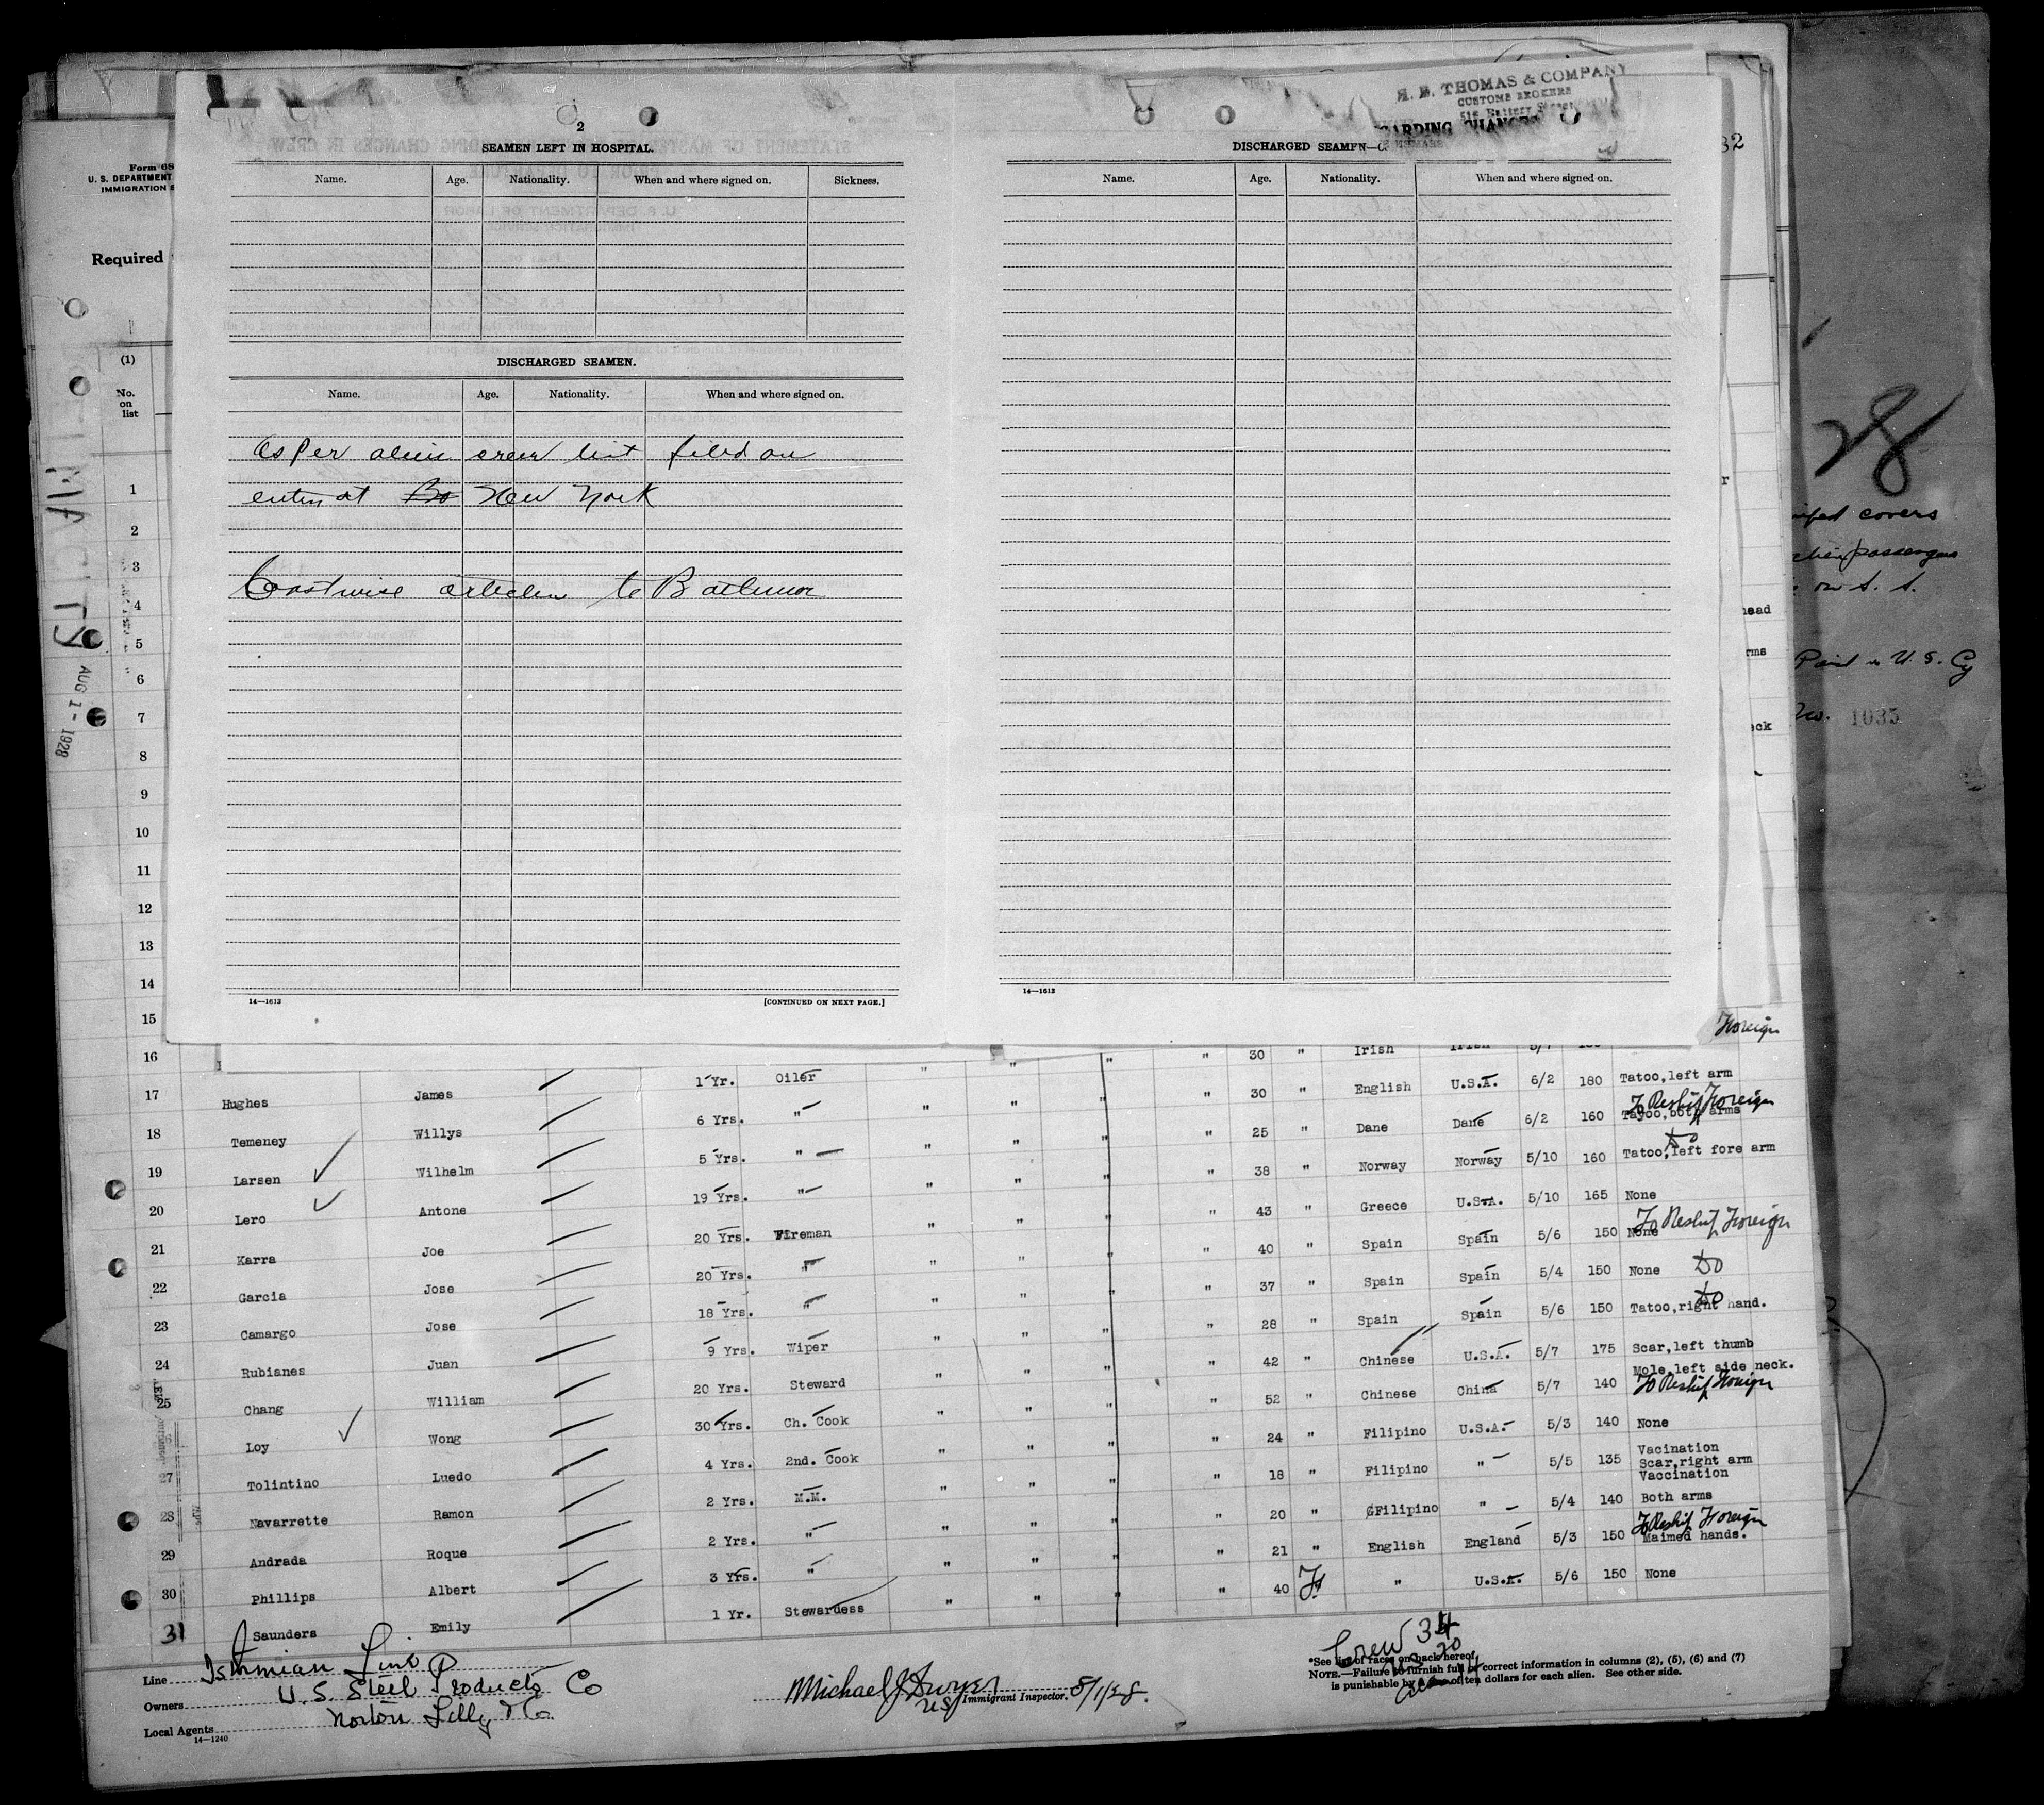 H. B. THOMAS & COMPANY
CUSTOMS BROKERS
510 Battery Street
2
SEAMEN LEFT IN HOSPITAL.
Name. Age. Nationality. When and where signed on. Sickness.
DISCHARGED SEAMEN.
Name. Age. Nationality. When and where signed on.
As per alien crew list filed on
entry at Bo New York
Coastwise articles to Baltimor
14—1613 [CONTINUED ON NEXT PAGE.]
ARDING CHANGES
DISCHARGED SEAMEN—C
Name. Age. Nationality. When and where signed on.
14—1613
32
Form 68
U. S. DEPARTMENT
IMMIGRATION S
Required
(1)
No.
on
list
AUG 1 - 1928
1
2
3
4
5
6
7
8
9
10
11
12
13
14
15
Foreign
28
covers
passengers
on S. S.
Paid in U. S. Cy
No. 1035
ead
rms
eck
16 " " " " 30 " Irish Irish 5/7
17 Hughes James 1 Yr. Oiler " " " " 30 " English U.S.A. 6/2 180 Tatoo,left arm
To Reship Foreign
18 Temeney Willys 6 Yrs. " " " " " 25 " Dane Dane 6/2 160 Tayoo,both arms
Do
19 Larsen Wilhelm 5 Yrs. " " " " " 38 " Norway Norway 5/10 160 Tatoo,left fore arm
20 Lero Antone 19 Yrs. " " " " " 43 " Greece U.S.A. 5/10 165 None
To Reship Foreign
21 Karra Joe 20 Yrs. Fireman " " " " 40 " Spain Spain 5/6 150 None
22 Garcia Jose 20 Yrs. " " " " " 37 " Spain Spain 5/4 150 None Do
Do
23 Camargo Jose 18 Yrs. " " " " " 28 " Spain Spain 5/6 150 Tatoo,right hand.
24 Rubianes Juan 9 Yrs. Wiper " " " " 42 " Chinese U.S.A. 5/7 175 Scar,left thumb
Mole,left side neck.
25 Chang William 20 Yrs. Steward " " " " 52 " Chinese China 5/7 140 To Reship Foreign
Loy Wong 30 Yrs. Ch. Cook " " " " 24 " Filipino U.S.A. 5/3 140 None
27 Tolintino Luedo 4 Yrs. 2nd. Cook " " " " 18 " Filipino " 5/5 135 Vacination
Scar,right arm
Vaccination
28 Navarrette Ramon 2 Yrs. M.M. " " " " 20 " GFilipino " 5/4 140 Both arms
To Reship Foreign
29 Andrada Roque 2 Yrs. " " " " " 21 " English England 5/3 150 Maimed hands.
30 Phillips Albert 3 Yrs. " " " " " 40 F " U.S.A. 5/6 150 None
31 Saunders Emily 1 Yr. Stewardess " " "
Line Isthmian Line
Owners U. S. Steel Products Co
Local Agents Norton Lilly & Co.
14—1240
Michael J Dwyer
US Immigrant Inspector. 8/1/28.
Crew 34
US 20
14
*See list of races on back hereof
NOTE.—Failure to furnish full or correct information in columns (2), (5), (6) and (7)
is punishable by a fine of ten dollars for each alien. See other side.